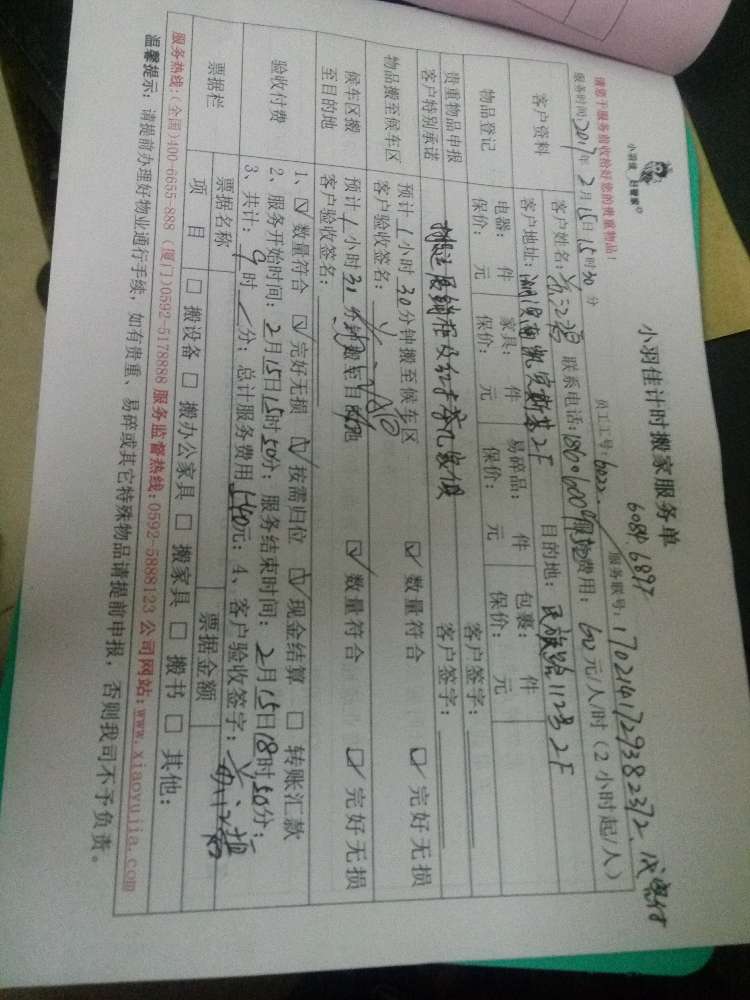 小羽佳 好管家
小羽佳计时搬家服务单
请您于服务前收拾好您的贵重物品！
员工工号：6022、6084、6897
服务联号：1702141729382372、
服务时间：2017年2月15日15时30分
客户资料
客户姓名： 联系电话： 服务费用：60元/人/时（2小时起/人）
客户地址： 凯宾斯基2F 目的地：民族路112号2F
物品登记
电器： 件 家具： 件 易碎品： 件 包裹： 件
保价： 元 保价： 元 保价： 元 保价： 元
贵重物品申报 客户签字：
客户特别承诺 客户签字：
物品搬至候车区
预计1小时30分钟搬至候车区 ☑ 数量符合 ☑ 完好无损
客户验收签名：
候车区搬至目的地
预计1小时30分钟搬至目的地 ☑ 数量符合 ☑ 完好无损
客户验收签名：
验收付费
1、☑ 数量符合 ☑ 完好无损 ☑ 按需归位 ☑ 现金结算 □ 转账汇款
2、服务开始时间：2月15日15时50分；服务结束时间：2月15日18时50分；
3、共计：9时 分；总计服务费用540元；4、客户验收签字：
票据栏
票据名称 票据金额
项目 □ 搬设备 □ 搬办公家具 □ 搬家具 □ 搬书 □ 其他：
服务热线：(全国)400-6655-888 (厦门)0592-5178888 服务监督热线：0592-5888123 公司网站：www.xiaoyujia.com
温馨提示：请提前办理好物业通行手续，如有贵重、易碎或其它特殊物品请提前申报，否则我司不予负责。